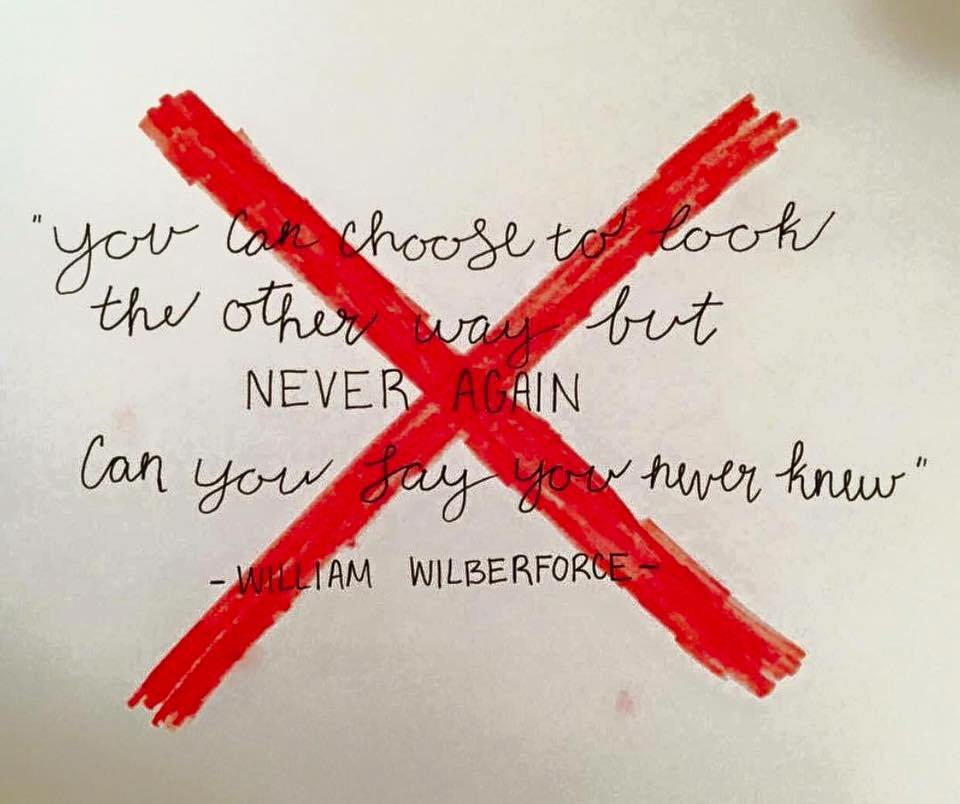 "you can choose to look
the other way but
NEVER AGAIN
Can you say you never knew"
-WILLIAM WILBERFORCE-